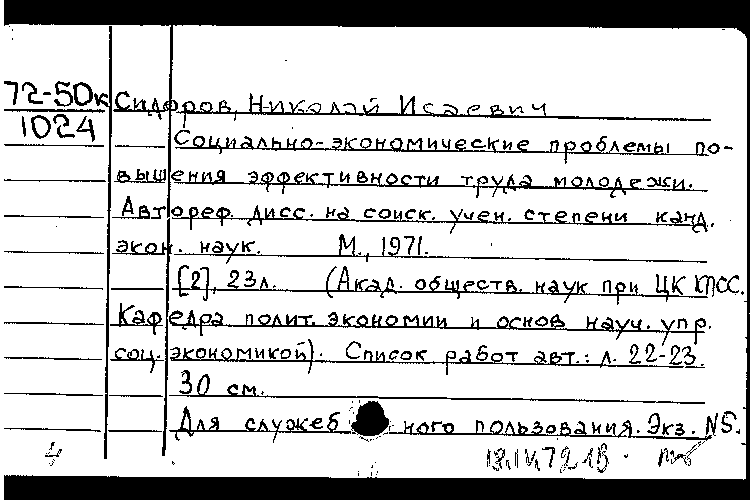 72-50к Сидоров, Николай Исаевич
1024
Социально-экономические проблемы по-
вышения эффективности труда молодежи.
Автореф. дисс. на соиск. учен. степени канд.
экон. наук. М., 1971.
[2], 23л. (Акад. обществ. наук при ЦК КПСС.
Кафедра полит. экономии и основ науч. упр.
соц. экономикой). Список работ авт.: л. 22-23.
30 см.
Для служебного пользования. Экз. №5.
4